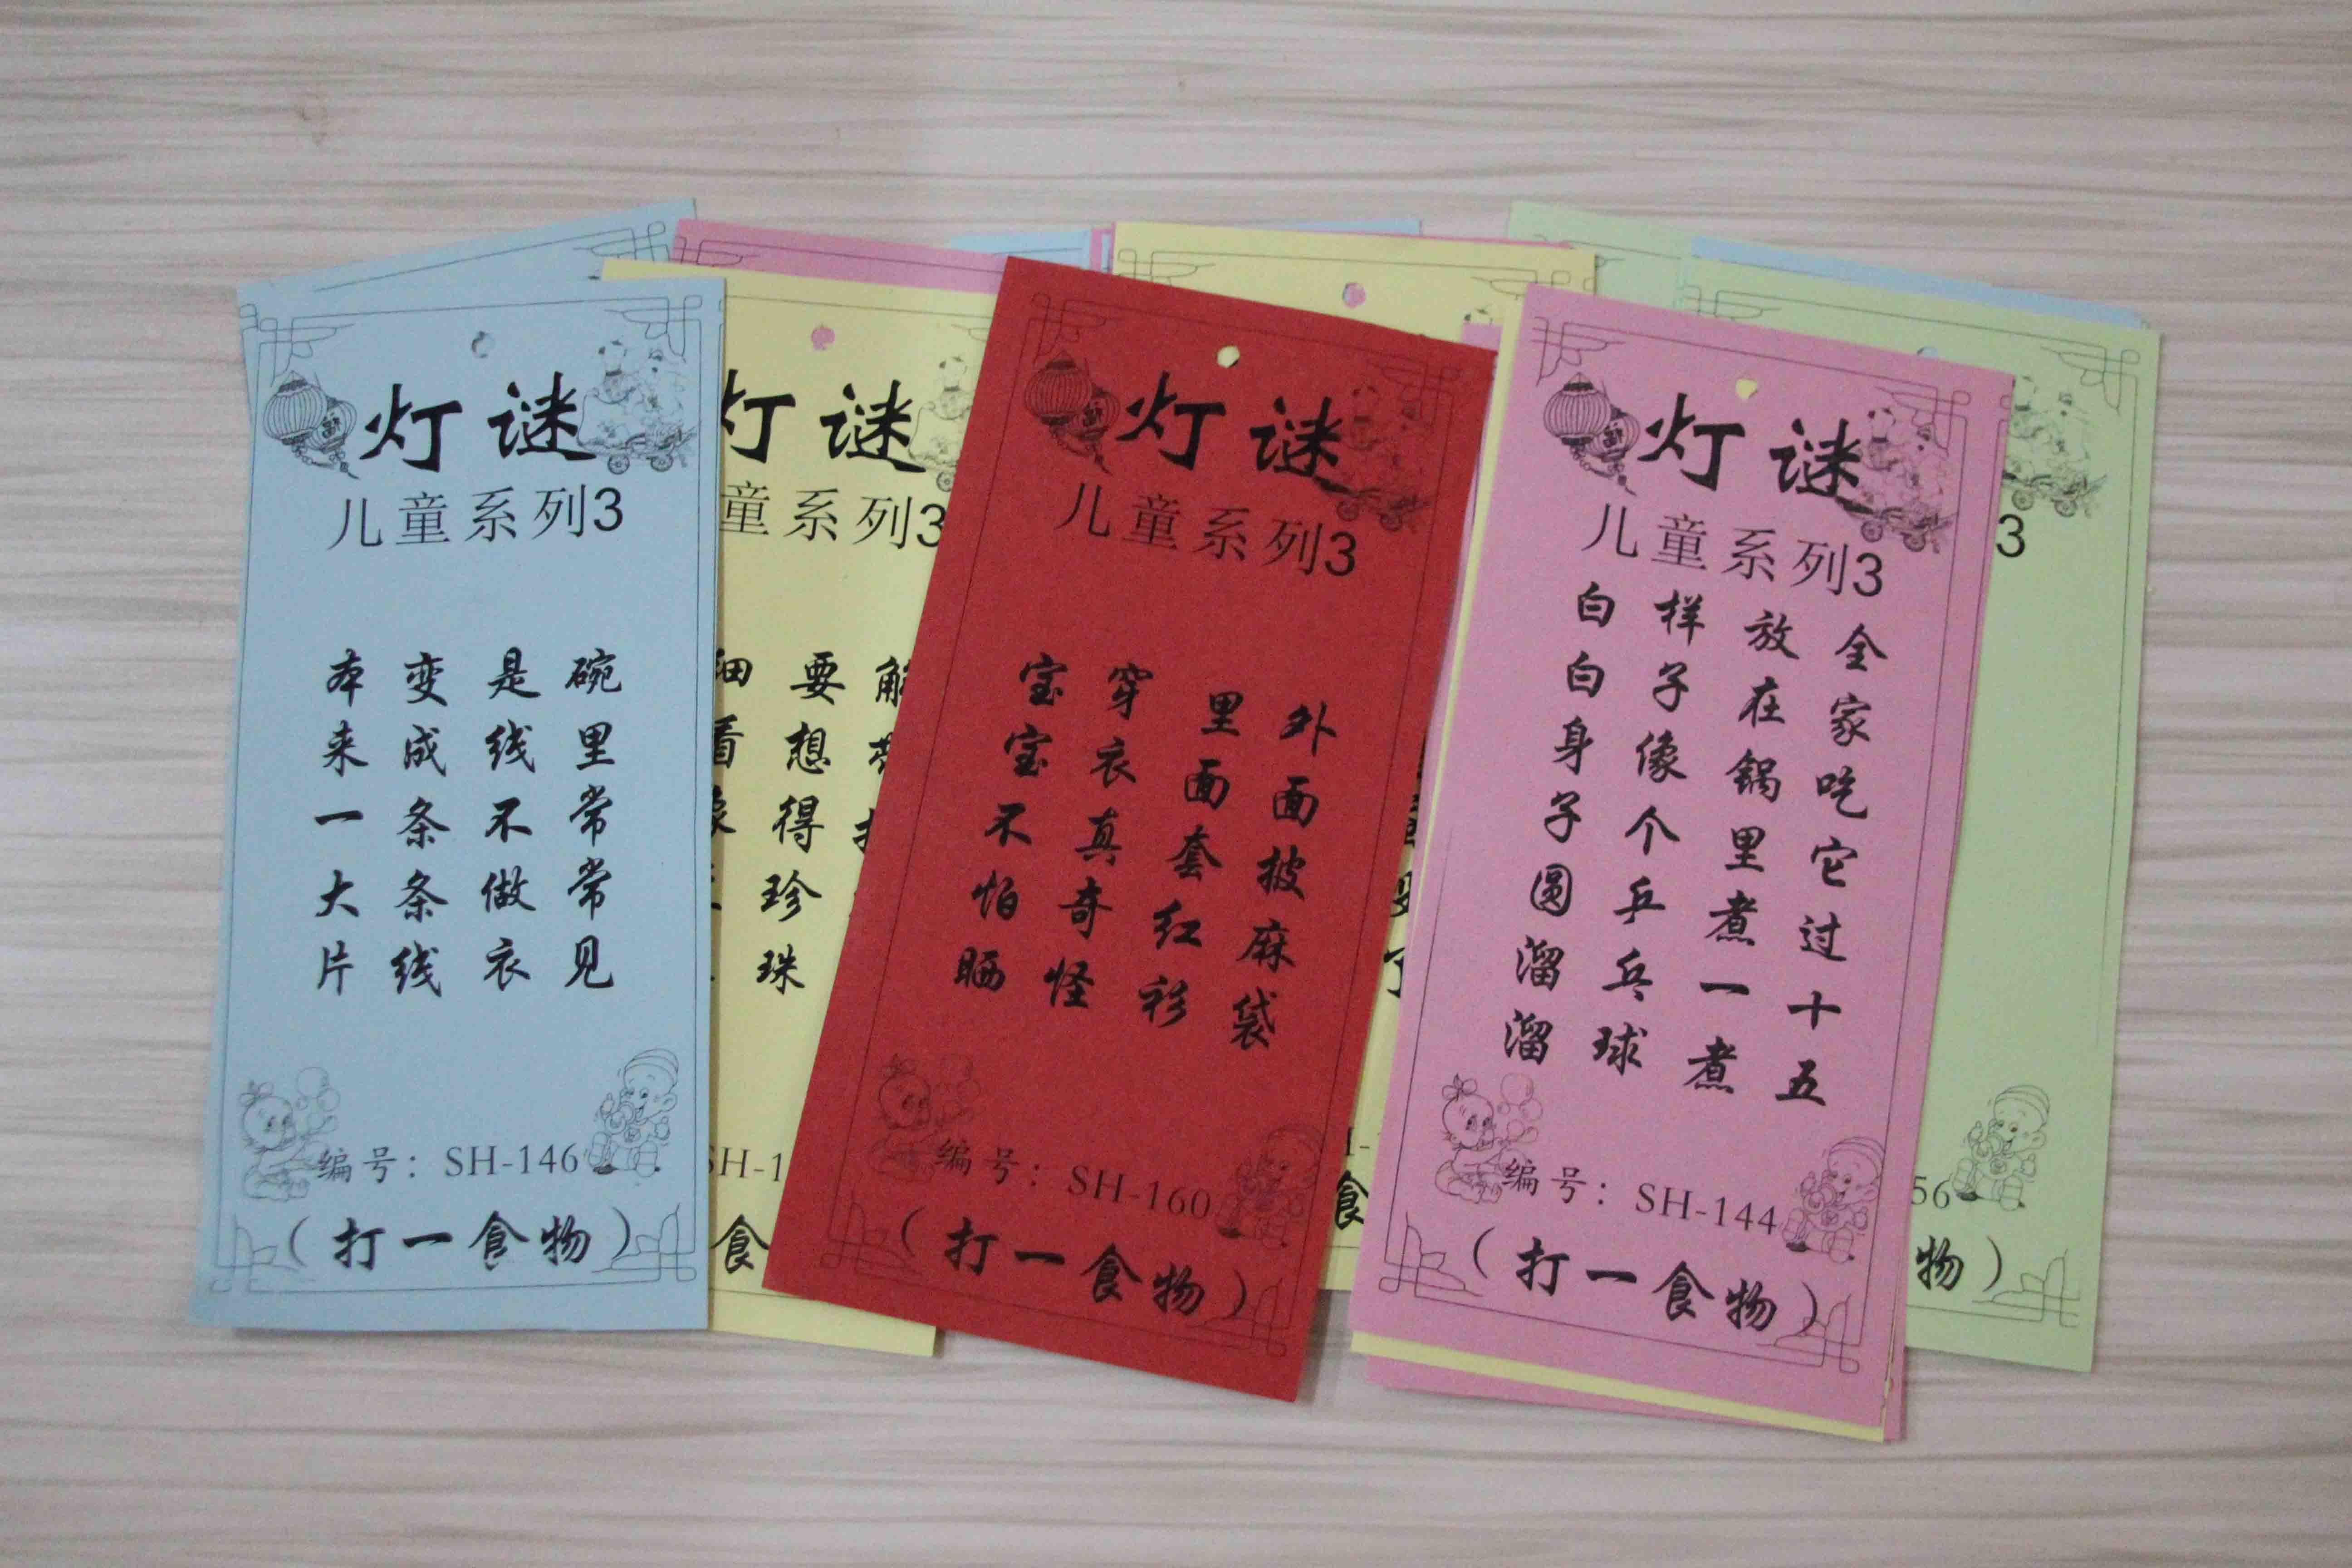 灯谜
儿童系列3
本来一大片
变成条条线
是线不做衣
碗里常常见
编号：SH-146
（打一食物）
灯谜
童系列3
细看像
要想得珍珠
SH-1
食
灯谜
儿童系列3
宝宝不怕晒
穿衣真奇怪
里面套红衫
外面披麻袋
编号：SH-160
（打一食物）
食
灯谜
儿童系列3
白白身子圆溜溜
样子像个乒乓球
放在锅里煮一煮
全家吃它过十五
编号：SH-144
（打一食物）
3
56
物）